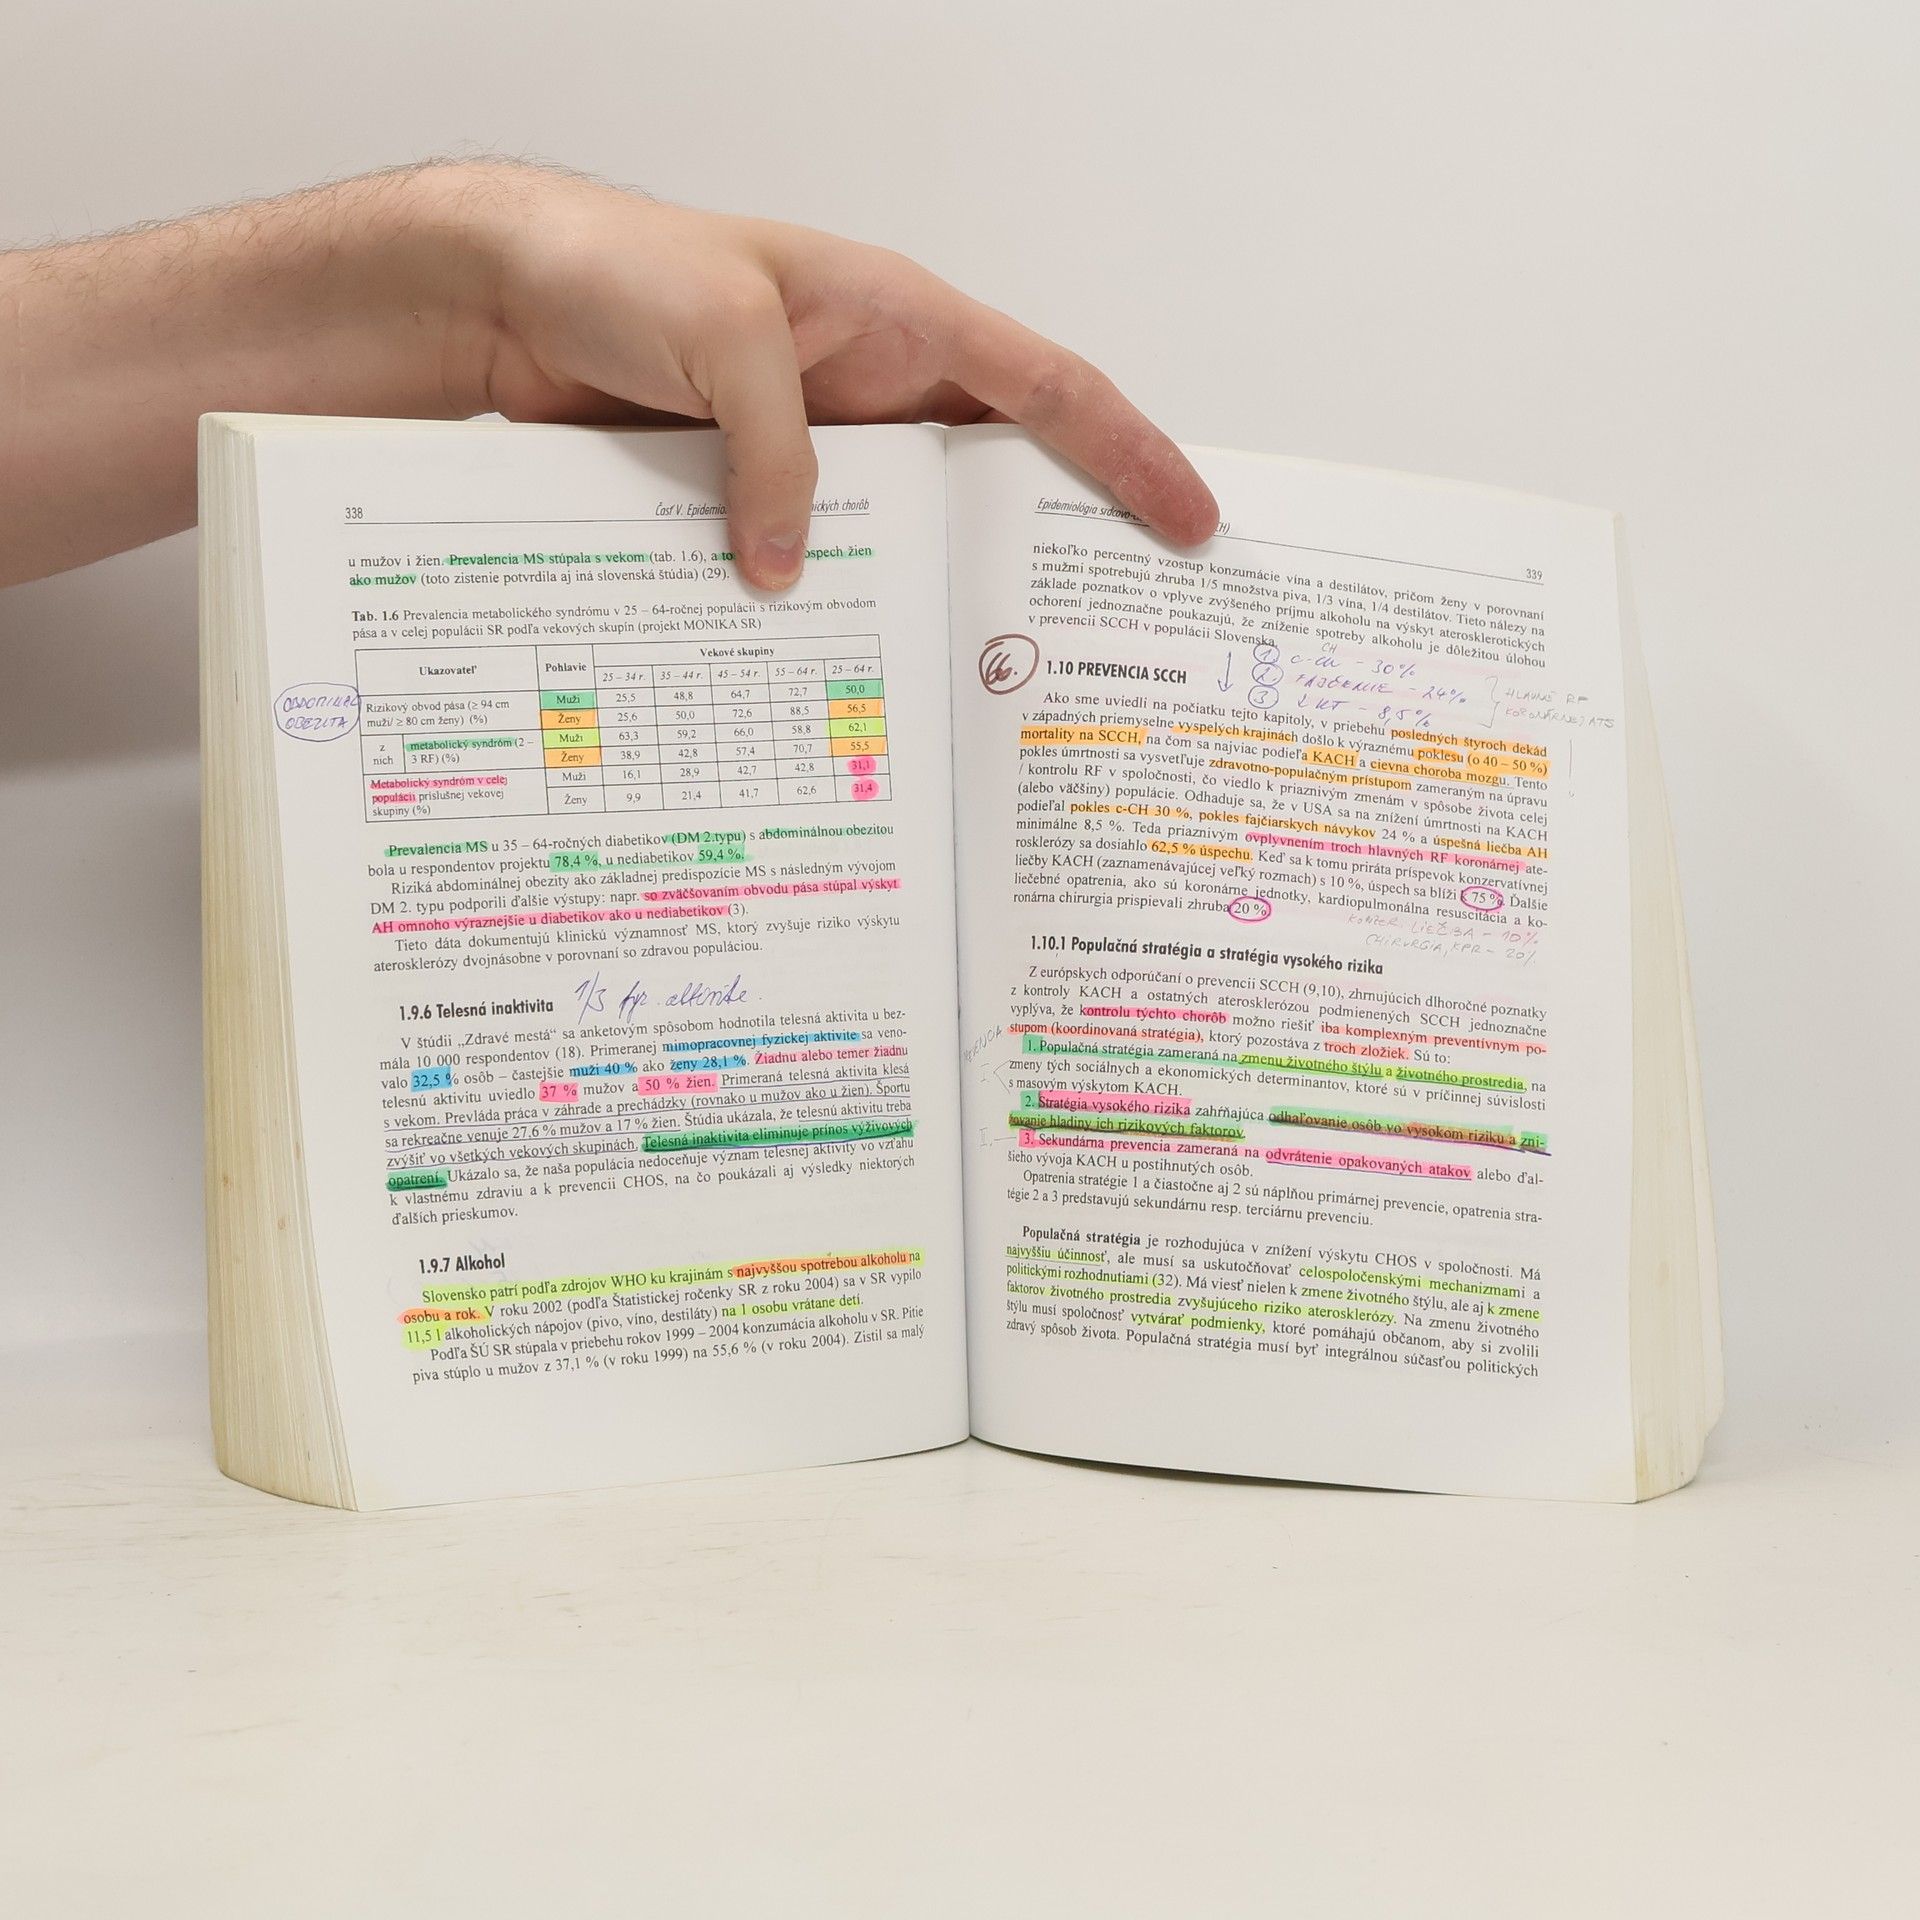 338
Časť V. Epidemio
ických chorôb
u mužov i žien. Prevalencia MS stúpala s vekom (tab. 1.6), a to ospech žien
ako mužov (toto zistenie potvrdila aj iná slovenská štúdia) (29).
Tab. 1.6 Prevalencia metabolického syndrómu v 25 – 64-ročnej populácii s rizikovým obvodom
pása a v celej populácii SR podľa vekových skupín (projekt MONIKA SR)
Ukazovateľ Pohlavie Vekové skupiny
25 – 34 r. 35 – 44 r. 45 – 54 r. 55 – 64 r. 25 – 64 r.
OBDOMINAL
OBEZITA
Rizikový obvod pása (≥ 94 cm
muži/ ≥ 80 cm ženy) (%)
Muži 25,5 48,8 64,7 72,7 50,0
Ženy 25,6 50,0 72,6 88,5 56,5
z
nich
metabolický syndróm (2 –
3 RF) (%)
Muži 63,3 59,2 66,0 58,8 62,1
Ženy 38,9 42,8 57,4 70,7 55,5
Metabolický syndróm v celej
populácii príslušnej vekovej
skupiny (%)
Muži 16,1 28,9 42,7 42,8 31,1
Ženy 9,9 21,4 41,7 62,6 31,4
Prevalencia MS u 35 – 64-ročných diabetikov (DM 2.typu) s abdominálnou obezitou
bola u respondentov projektu 78,4 %, u nediabetikov 59,4 %.
Riziká abdominálnej obezity ako základnej predispozície MS s následným vývojom
DM 2. typu podporili ďalšie výstupy: napr. so zväčšovaním obvodu pása stúpal výskyt
AH omnoho výraznejšie u diabetikov ako u nediabetikov (3).
Tieto dáta dokumentujú klinickú významnosť MS, ktorý zvyšuje riziko výskytu
aterosklerózy dvojnásobne v porovnaní so zdravou populáciou.
1.9.6 Telesná inaktivita 1/3
V štúdii „Zdravé mestá“ sa anketovým spôsobom hodnotila telesná aktivita u bez-
mála 10 000 respondentov (18). Primeranej mimopracovnej fyzickej aktivite sa veno-
valo 32,5 % osôb – častejšie muži 40 % ako ženy 28,1 %. Žiadnu alebo temer žiadnu
telesnú aktivitu uviedlo 37 % mužov a 50 % žien. Primeraná telesná aktivita klesá
s vekom. Prevláda práca v záhrade a prechádzky (rovnako u mužov ako u žien). Športu
sa rekreačne venuje 27,6 % mužov a 17 % žien. Štúdia ukázala, že telesnú aktivitu treba
zvýšiť vo všetkých vekových skupinách. Telesná inaktivita eliminuje prínos výživových
opatrení. Ukázalo sa, že naša populácia nedoceňuje význam telesnej aktivity vo vzťahu
k vlastnému zdraviu a k prevencii CHOS, na čo poukázali aj výsledky niektorých
ďalších prieskumov.
1.9.7 Alkohol
Slovensko patrí podľa zdrojov WHO ku krajinám s najvyššou spotrebou alkoholu na
osobu a rok. V roku 2002 (podľa Štatistickej ročenky SR z roku 2004) sa v SR vypilo
11,5 l alkoholických nápojov (pivo, víno, destiláty) na 1 osobu vrátane detí.
Podľa ŠÚ SR stúpala v priebehu rokov 1999 – 2004 konzumácia alkoholu v SR. Pitie
piva stúplo u mužov z 37,1 % (v roku 1999) na 55,6 % (v roku 2004). Zistil sa malý
Epidemiológia srdcovo-
CH)
339
niekoľko percentný vzostup konzumácie vína a destilátov, pričom ženy v porovnaní
s mužmi spotrebujú zhruba 1/5 množstva piva, 1/3 vína, 1/4 destilátov. Tieto nálezy na
základe poznatkov o vplyve zvýšeného príjmu alkoholu na výskyt aterosklerotických
ochorení jednoznačne poukazujú, že zníženie spotreby alkoholu je dôležitou úlohou
v prevencii SCCH v populácii Slovenska.
66.
1.10 PREVENCIA SCCH
CH
1 c-CH – 30%
2 FAJČENIE – 24%
3 – 8,5%
HLAVNÉ RF
KORONÁRNEJ ATS
Ako sme uviedli na počiatku tejto kapitoly, v priebehu posledných štyroch dekád
v západných priemyselne vyspelých krajinách došlo k výraznému poklesu (o 40 – 50 %)
mortality na SCCH, na čom sa najviac podieľa KACH a cievna choroba mozgu. Tento
pokles úmrtnosti sa vysvetľuje zdravotno-populačným prístupom zameraným na úpravu
/ kontrolu RF v spoločnosti, čo viedlo k priaznivým zmenám v spôsobe života celej
(alebo väčšiny) populácie. Odhaduje sa, že v USA sa na znížení úmrtnosti na KACH
podieľal pokles c-CH 30 %, pokles fajčiarskych návykov 24 % a úspešná liečba AH
minimálne 8,5 %. Teda priaznivým ovplyvnením troch hlavných RF koronárnej ate-
rosklerózy sa dosiahlo 62,5 % úspechu. Keď sa k tomu priráta príspevok konzervatívnej
liečby KACH (zaznamenávajúcej veľký rozmach) s 10 %, úspech sa blíži k 75 %. Ďalšie
liečebné opatrenia, ako sú koronárne jednotky, kardiopulmonálna resuscitácia a ko-
ronárna chirurgia prispievali zhruba 20 %.
KONZER. LIEČBA – 10%
CHIRURGIA, KPR – 20%
1.10.1 Populačná stratégia a stratégia vysokého rizika
Z európskych odporúčaní o prevencii SCCH (9,10), zhrnujúcich dlhoročné poznatky
z kontroly KACH a ostatných aterosklerózou podmienených SCCH jednoznačne
vyplýva, že kontrolu týchto chorôb možno riešiť iba komplexným preventívnym po-
stupom (koordinovaná stratégia), ktorý pozostáva z troch zložiek. Sú to:
1. Populačná stratégia zameraná na zmenu životného štýlu a životného prostredia, na
zmeny tých sociálnych a ekonomických determinantov, ktoré sú v príčinnej súvislosti
s masovým výskytom KACH.
I.
2. Stratégia vysokého rizika zahŕňajúca odhaľovanie osôb vo vysokom riziku a zni-
žovanie hladiny ich rizikových faktorov.
II.
3. Sekundárna prevencia zameraná na odvrátenie opakovaných atakov alebo ďal-
šieho vývoja KACH u postihnutých osôb.
Opatrenia stratégie 1 a čiastočne aj 2 sú náplňou primárnej prevencie, opatrenia stra-
tégie 2 a 3 predstavujú sekundárnu resp. terciárnu prevenciu.
Populačná stratégia je rozhodujúca v znížení výskytu CHOS v spoločnosti. Má
najvyššiu účinnosť, ale musí sa uskutočňovať celospoločenskými mechanizmami a
politickými rozhodnutiami (32). Má viesť nielen k zmene životného štýlu, ale aj k zmene
faktorov životného prostredia zvyšujúceho riziko aterosklerózy. Na zmenu životného
štýlu musí spoločnosť vytvárať podmienky, ktoré pomáhajú občanom, aby si zvolili
zdravý spôsob života. Populačná stratégia musí byť integrálnou súčasťou politických